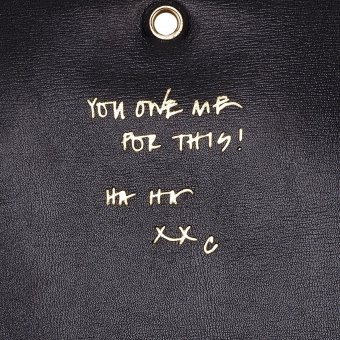 YOU OWE ME
FOR THIS!
HA HA
XX C